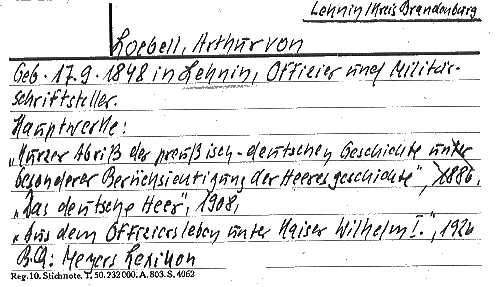 Lehnin Kreis Brandenburg
Loebell, Arthur von
Geb. 17.9.1848 in Lehnin, Officier und Militär-
schriftsteller.
Hauptwerke:
„Kurzer Abriß der preußisch-deutschen Geschichte unter
besonderer Berücksichtigung der Heeresgeschichte", 1886,
„Das deutsche Heer", 1908,
„Aus dem Officiersleben unter Kaiser Wilhelm I.", 1926
B.Q.: Meyers Lexikon
Reg. 10. Stichnote. T. 50. 232000. A. 803. S. 4062